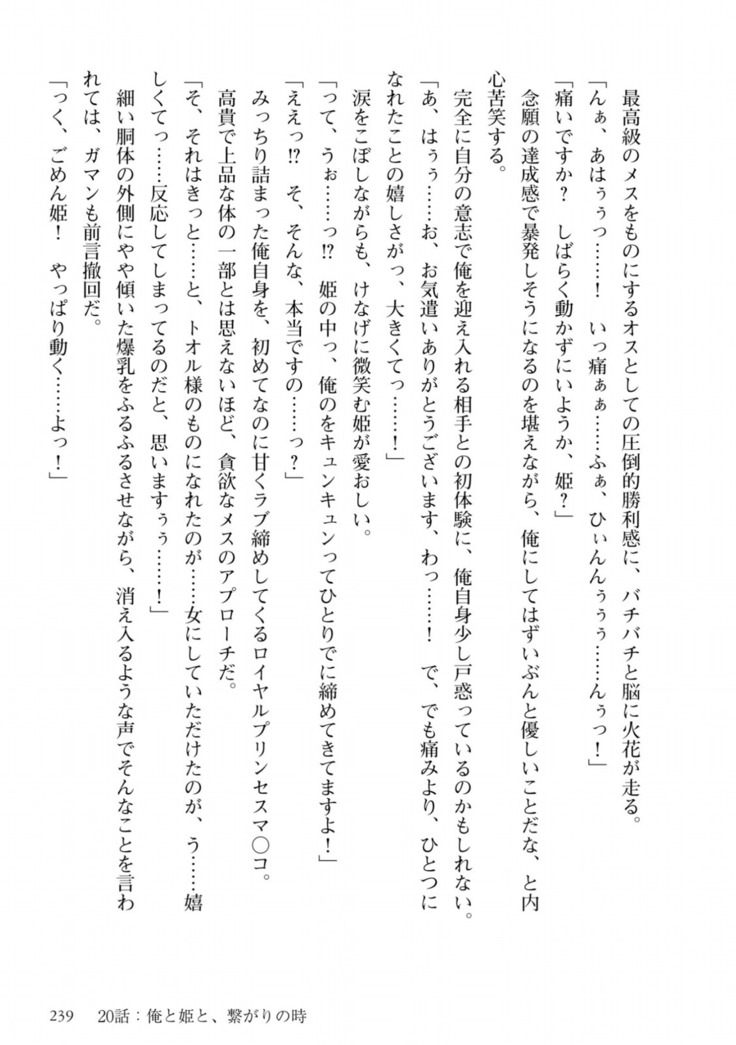 最高級のメスをものにするオスとしての圧倒的勝利感に、バチバチと脳に火花が走る。
「んぁ、あはぅぅっ……！　いっ痛ぁぁ……ふぁ、ひぃんんぅぅぅ……んぅっ！」
「痛いですか？　しばらく動かずにいようか、姫？」
念願の達成感で暴発しそうになるのを堪えながら、俺にしてはずいぶんと優しいことだな、と内
心苦笑する。
完全に自分の意志で俺を迎え入れる相手との初体験に、俺自身少し戸惑っているのかもしれない。
「あ、はぅぅ……お、お気遣いありがとうございます、わっ……！　で、でも痛みより、ひとつに
なれたことの嬉しさがっ、大きくてっ……！」
涙をこぼしながらも、けなげに微笑む姫が愛おしい。
「って、うぉ……っ!?　姫の中っ、俺のをキュンキュンってひとりでに締めてきてますよ！」
「ええっ!?　そ、そんな、本当ですの……っ？」
みっちり詰まった俺自身を、初めてなのに甘くラブ締めしてくるロイヤルプリンセスマ〇コ。
高貴で上品な体の一部とは思えないほど、貪欲なメスのアプローチだ。
「そ、それはきっと……と、トオル様のものになれたのが……女にしていただけたのが、う……嬉
しくてっ……反応してしまってるのだと、思いますぅぅ……！」
細い胴体の外側にやや傾いた爆乳をふるふるさせながら、消え入るような声でそんなことを言わ
れては、ガマンも前言撤回だ。
「っく、ごめん姫！　やっぱり動く……よっ！」
239　20話：俺と姫と、繋がりの時